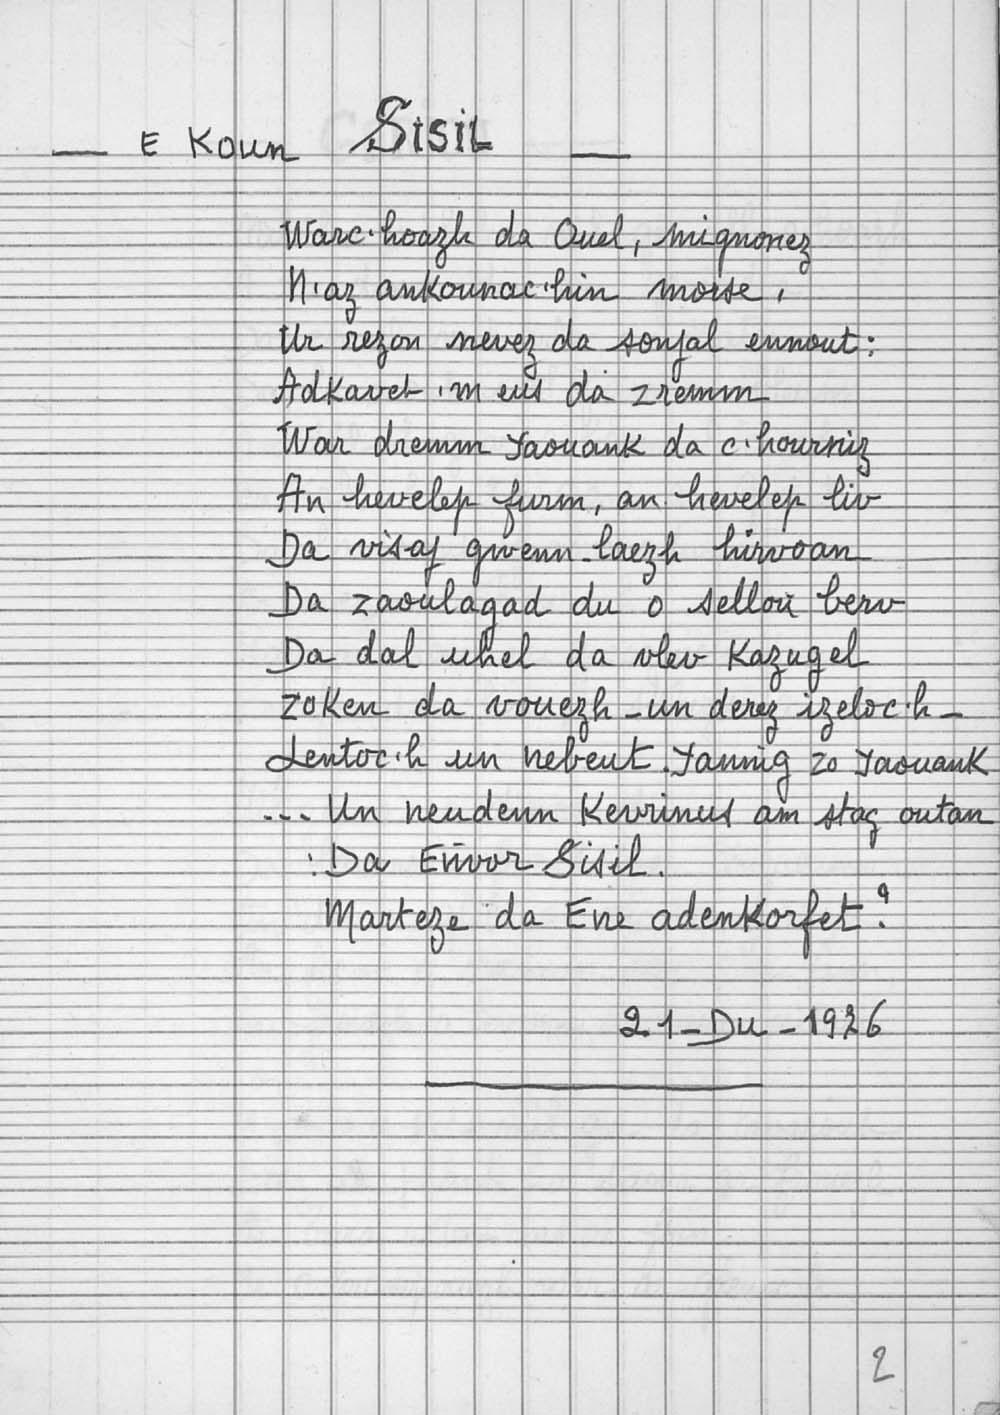 — E Koun Sisil —
Warc'hoazh da Ouel, mignonez
N'az ankounac'hin morse,
Ur rezon nevez da sonjal ennout:
Adkavet 'm eus da zremm
War dremm yaouank da c'hourniz
An hevelep furm, an hevelep liv
Da visaj gwenn-laezh hirvoan
Da zaoulagad du o sellou berv
Da dal uhel da vlev kazugel
zoken da vouezh - un derez izeloc'h -
Lentoc'h un nebeut. Yannig zo yaouank
... Un neudenn kevrinus am stag outan
: Da Eñvor Sisil.
Marteze da Ene adenkorfet?
21-Du-1926
2